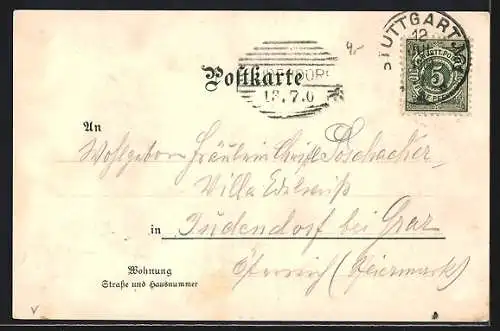 STUTTGART
12
JUL
5
Postkarte
13.7.0
4.-
An
Wohlgebor. Fräulein Christl Poschacher
Villa Edelweiß
in Judendorf bei Graz
Österreich (Steiermark)
Wohnung
Straße und Hausnummer
v